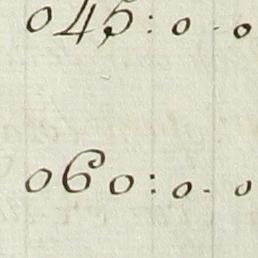 045: 0 - 0
060: 0 - 0